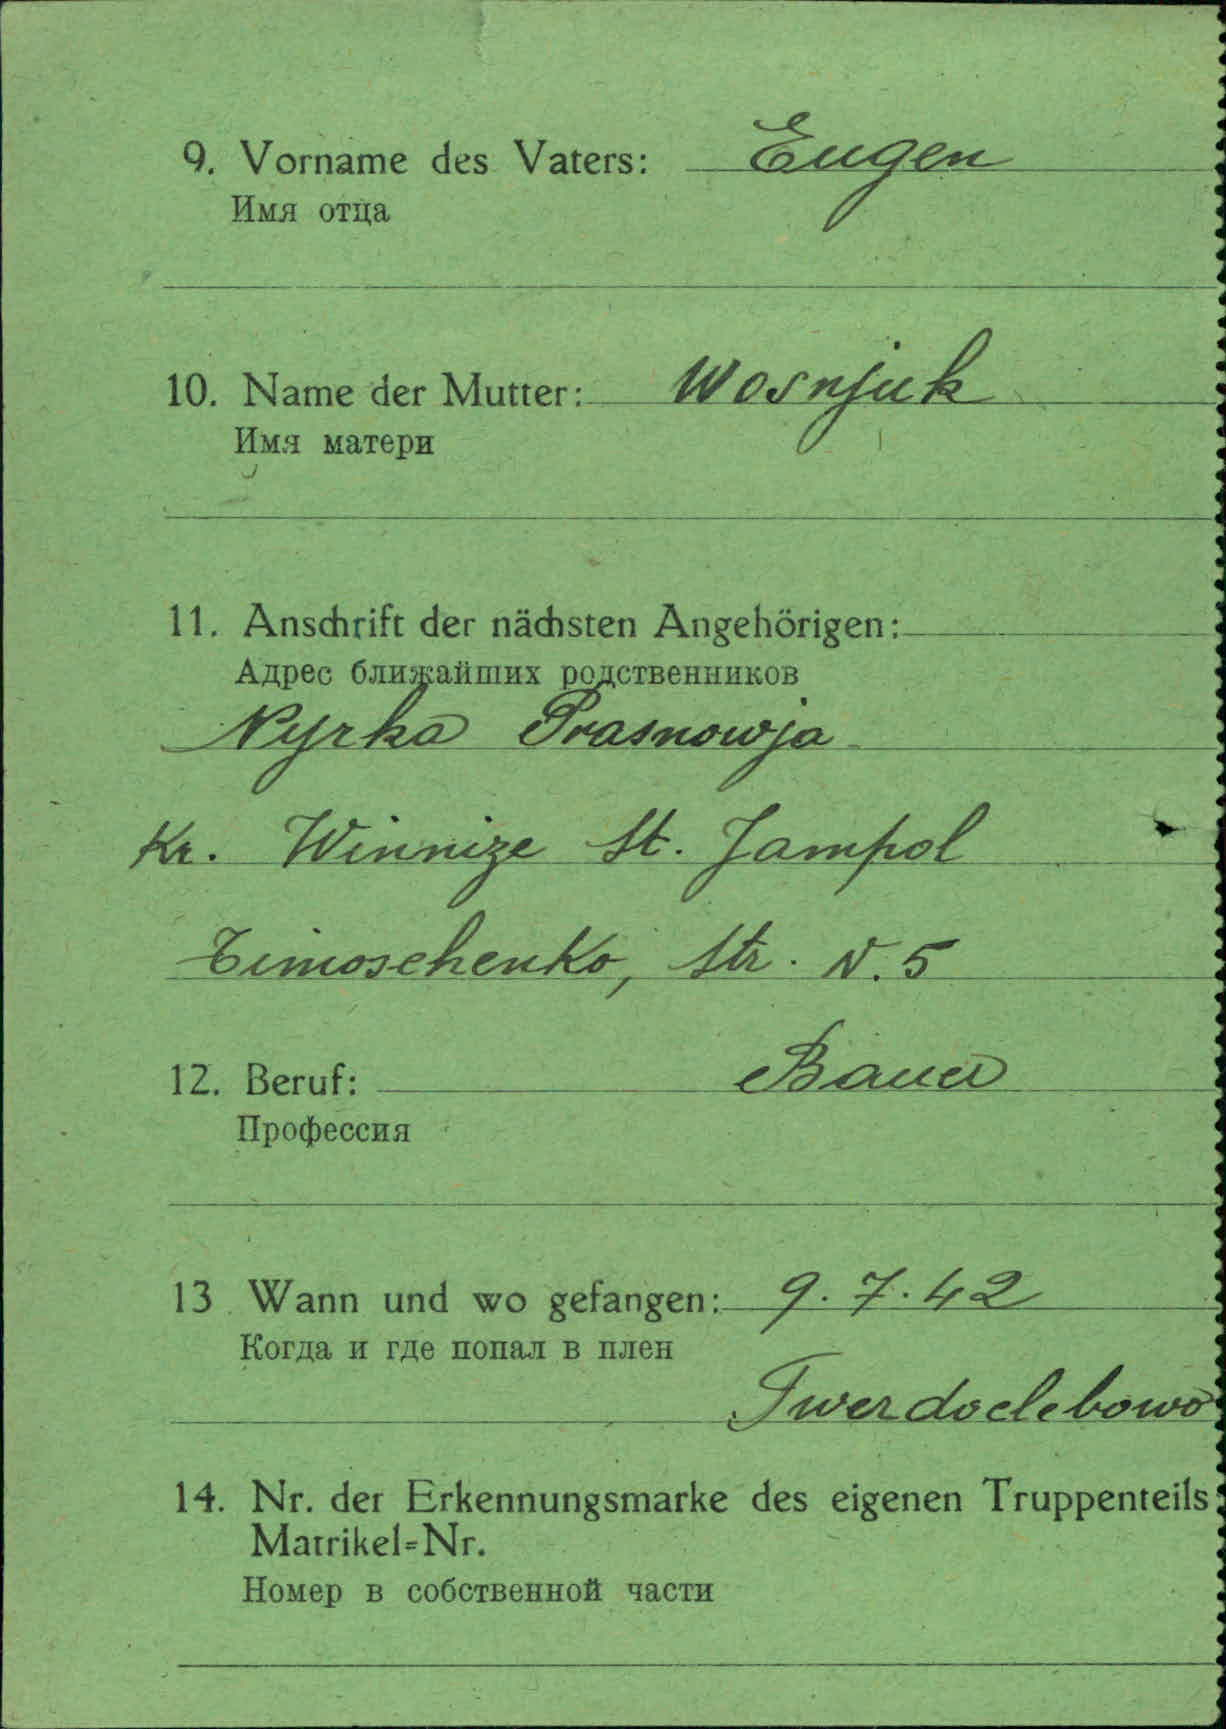 9. Vorname des Vaters: Eugen
Имя отца
10. Name der Mutter: Wosnjuk
Имя матери
11. Anschrift der nächsten Angehörigen:
Адрес ближайших родственников
Nyrka Prasnowja
Kr. Winnize St. Jampol
Timoschenko, Str. N. 5
12. Beruf: Bauer
Профессия
13 Wann und wo gefangen: 9. 7. 42
Когда и где попал в плен
Twerdoclebowo
14. Nr. der Erkennungsmarke des eigenen Truppenteils:
Matrikel=Nr.
Номер в собственной части